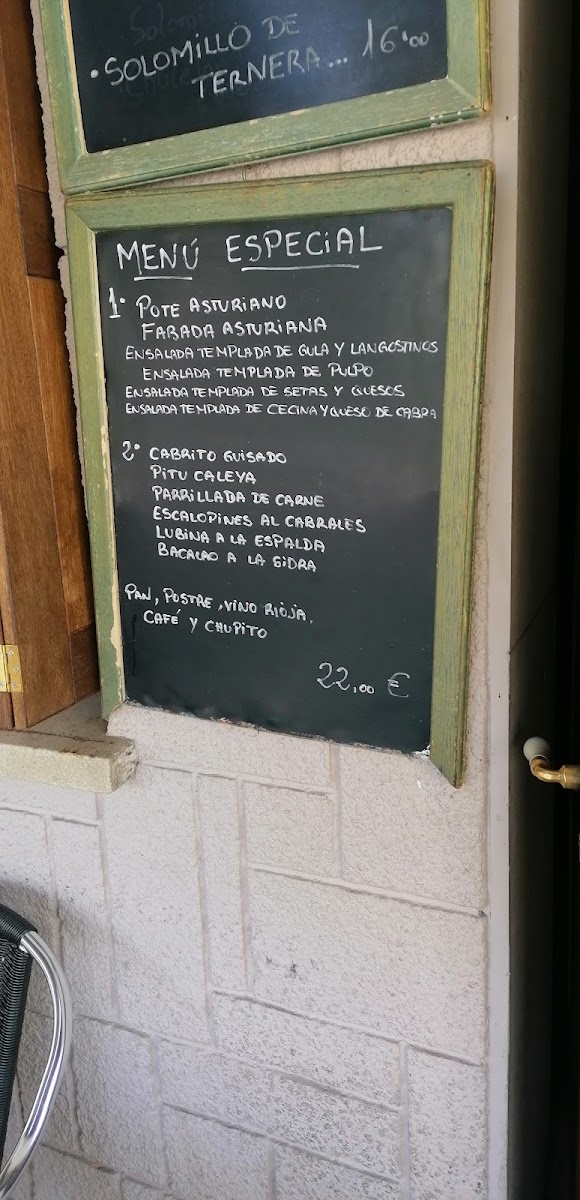 • SOLOMILLO DE
TERNERA... 16'00
MENÚ ESPECIAL
1º POTE ASTURIANO
FABADA ASTURIANA
ENSALADA TEMPLADA DE GULA Y LANGOSTINOS
ENSALADA TEMPLADA DE PULPO
ENSALADA TEMPLADA DE SETAS Y QUESOS
ENSALADA TEMPLADA DE CECINA Y QUESO DE CABRA
2º CABRITO GUISADO
PITU CALEYA
PARRILLADA DE CARNE
ESCALOPINES AL CABRALES
LUBINA A LA ESPALDA
BACALAO A LA SIDRA
PAN, POSTRE, VINO RIOJA,
CAFÉ Y CHUPITO
22,00 €